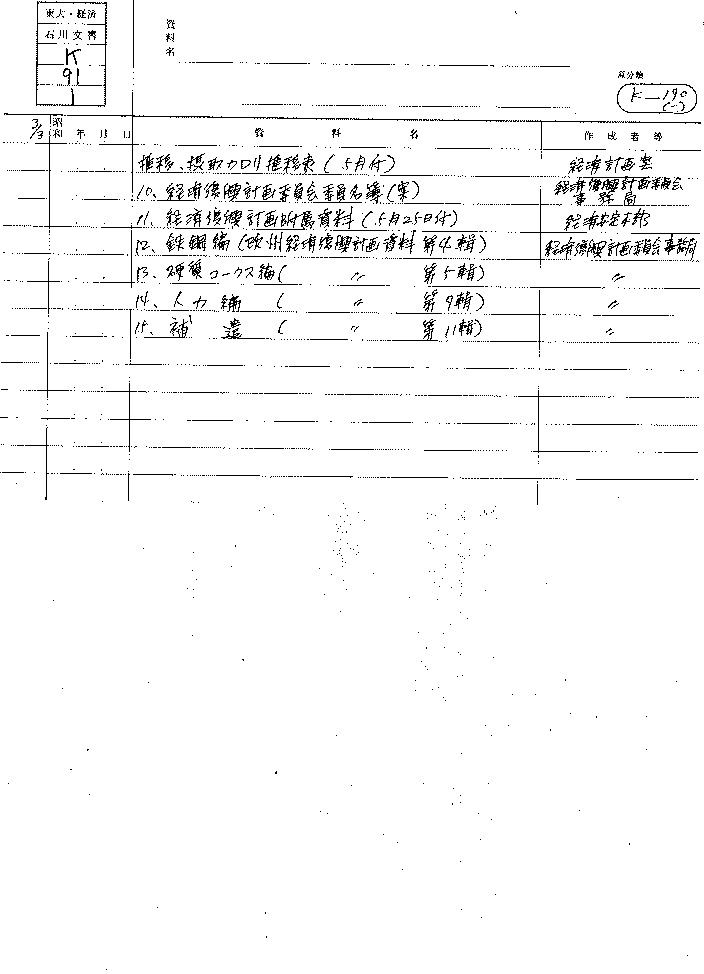 東大・経済
石川文書
K
91
1
資料名
原分類
K-190
(-)
3/3 昭和 年 月 日 資料名 作成者等
推移、摂取カロリ推移表(5月付) 経済計画室
10、経済復興計画委員会委員名簿(案) 経済復興計画委員会事務局
11、経済復興計画附属資料(5月25日付) 経済安定本部
12、鉄鋼編(欧州経済復興計画資料 第4輯) 経済復興計画委員会事務局
13、硬質コークス編( 〃 第5輯) 〃
14、人力編 ( 〃 第9輯) 〃
15、補遺 ( 〃 第11輯) 〃